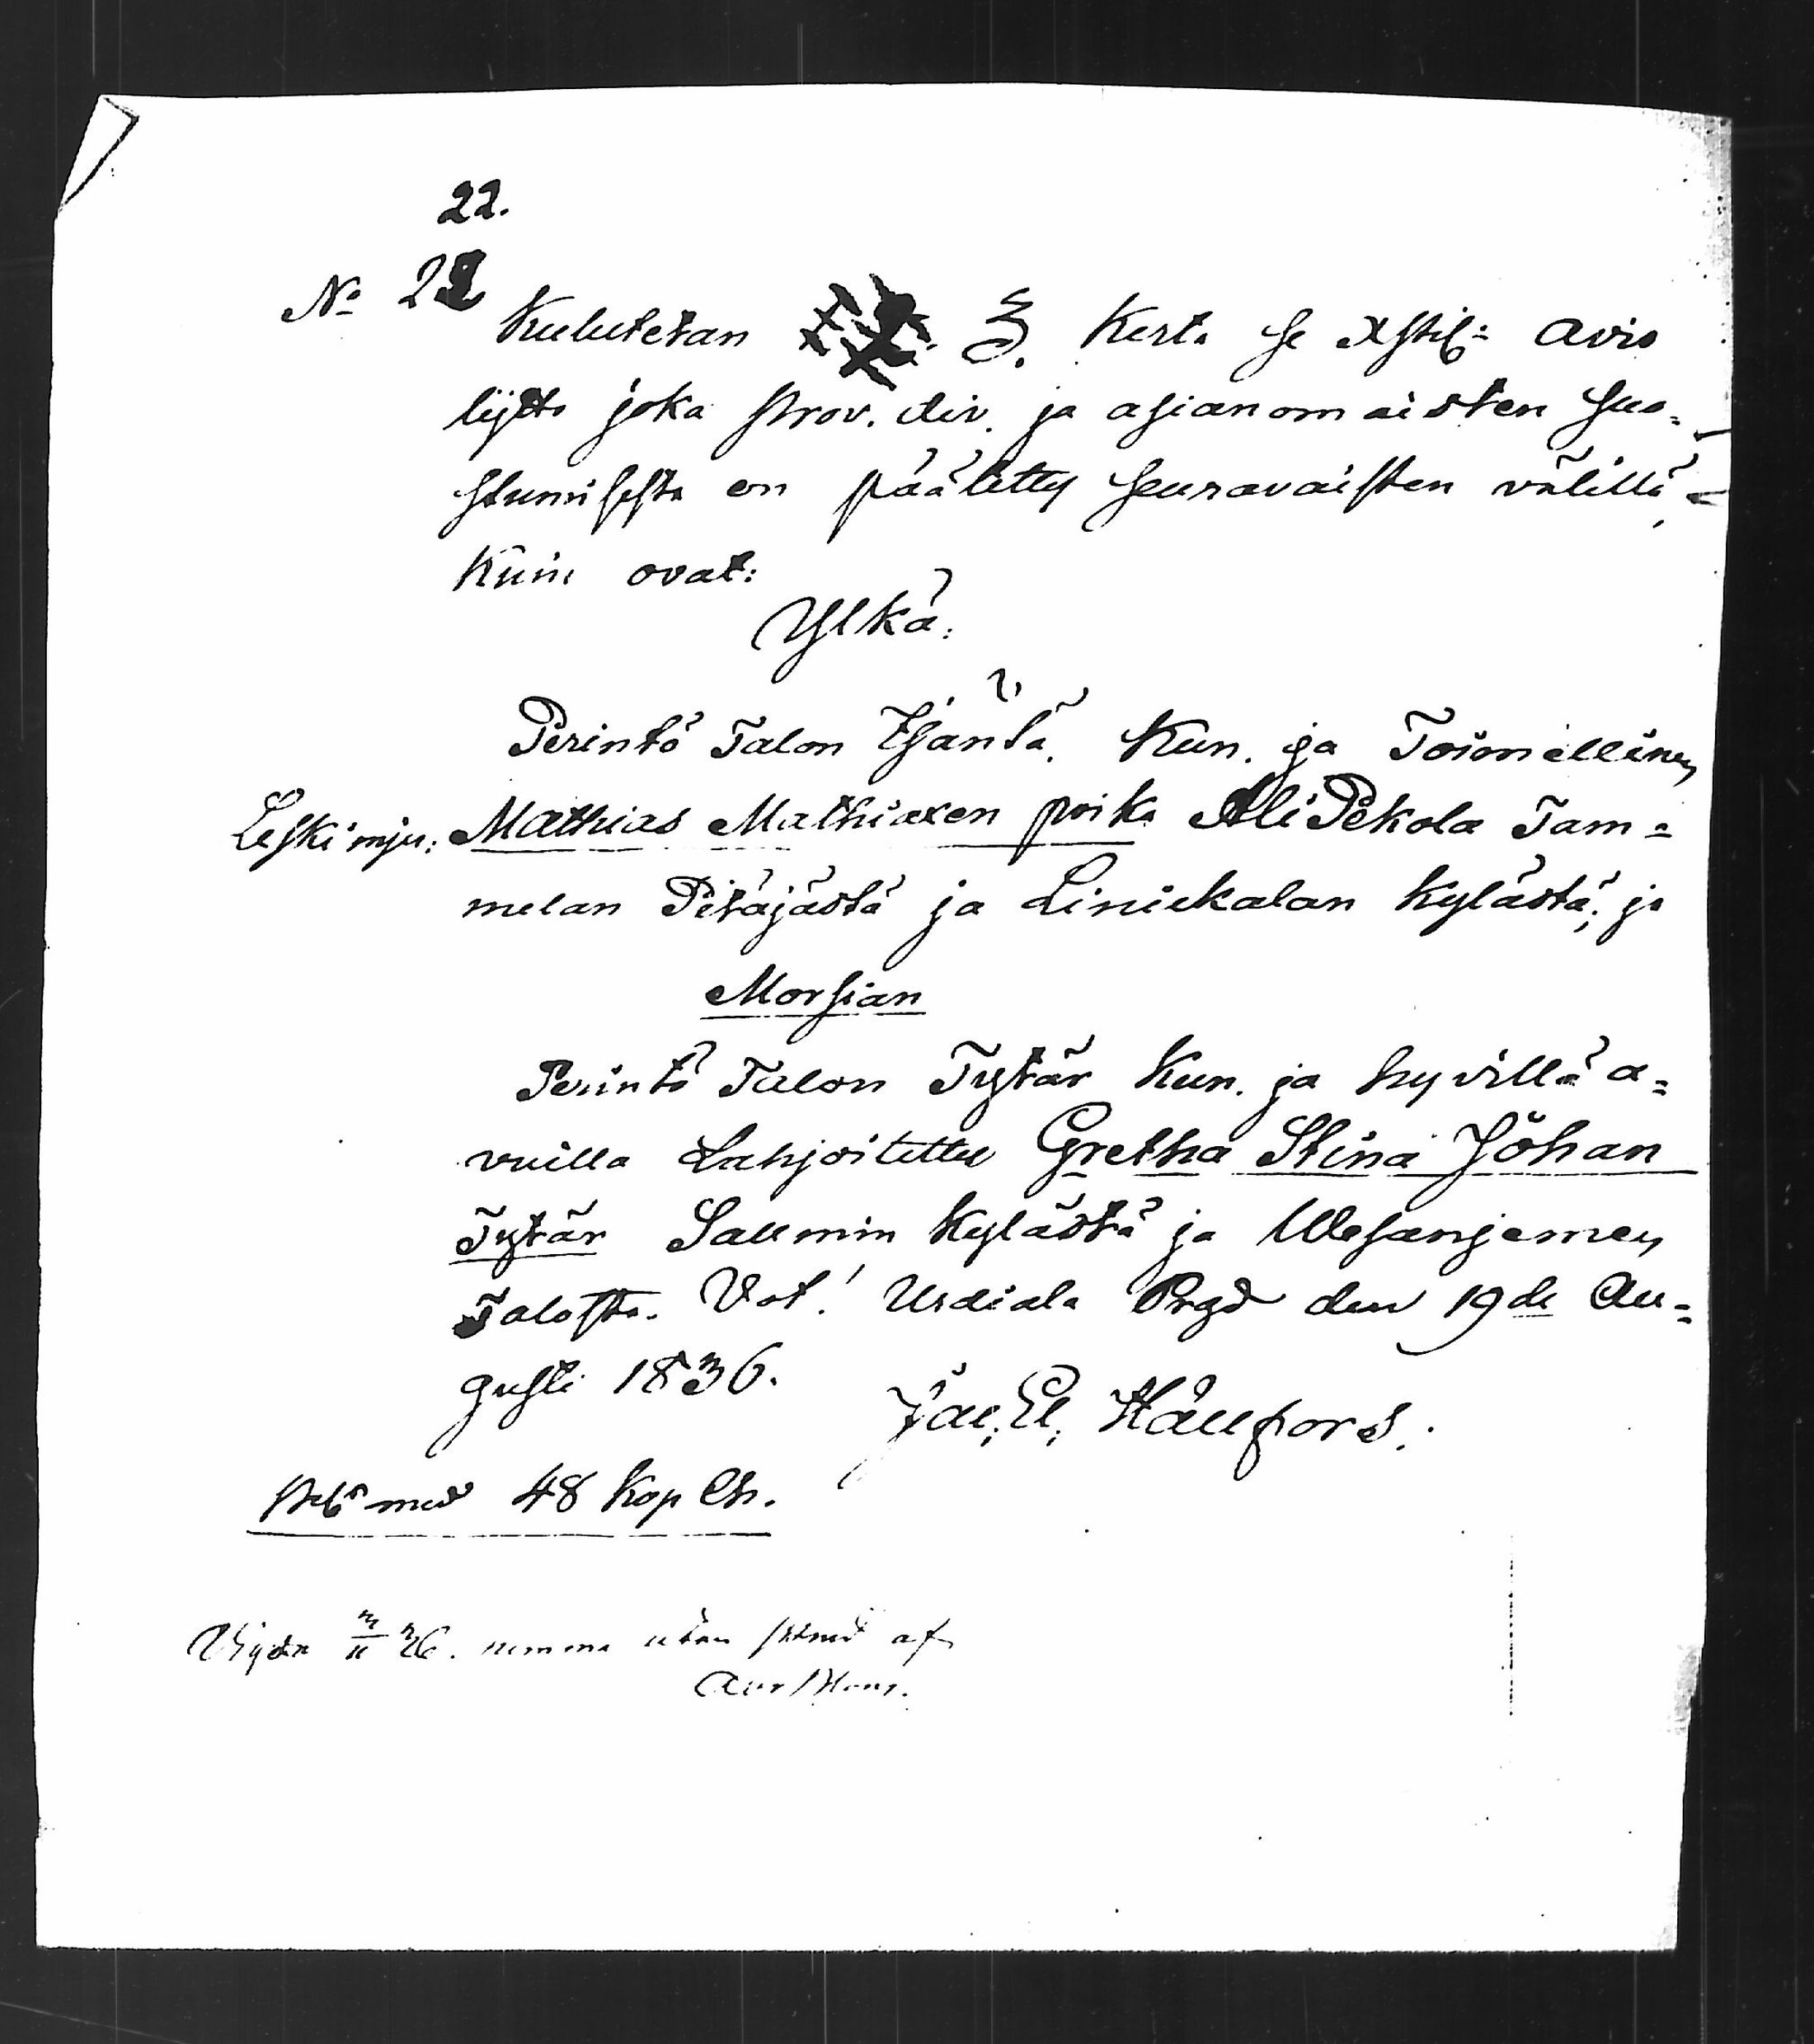 22.
No 22 Kulutetan 3. Kerta se Xstil: avio
lijtto joka prov. div. ja asianomaisten suo=
stumisesta on päätetty seuravaisten välillä
Kuin ovat:
Ylkä:
Perintö Talon Isäntä. Kun. ja Toimellinen
Leskimjes: Mathias Mathiaxen poika Ali Pekola Tam=
melan Pitäjästä ja Liniekalan Kylästä; ja
Morsian
Perintö Talon Tytär Kun. ja hyvillä a=
vuilla Lahjoitettu Gretha Stina Johan
Tytär Salmin Kylästä ja Uesanjemen
Talosta. Vot! Urdiala Prgd den 19de Au=
gusti 1836.
Jac. El. Hällfors.
med 48 Kop Ch.
Vigda 36. utan af